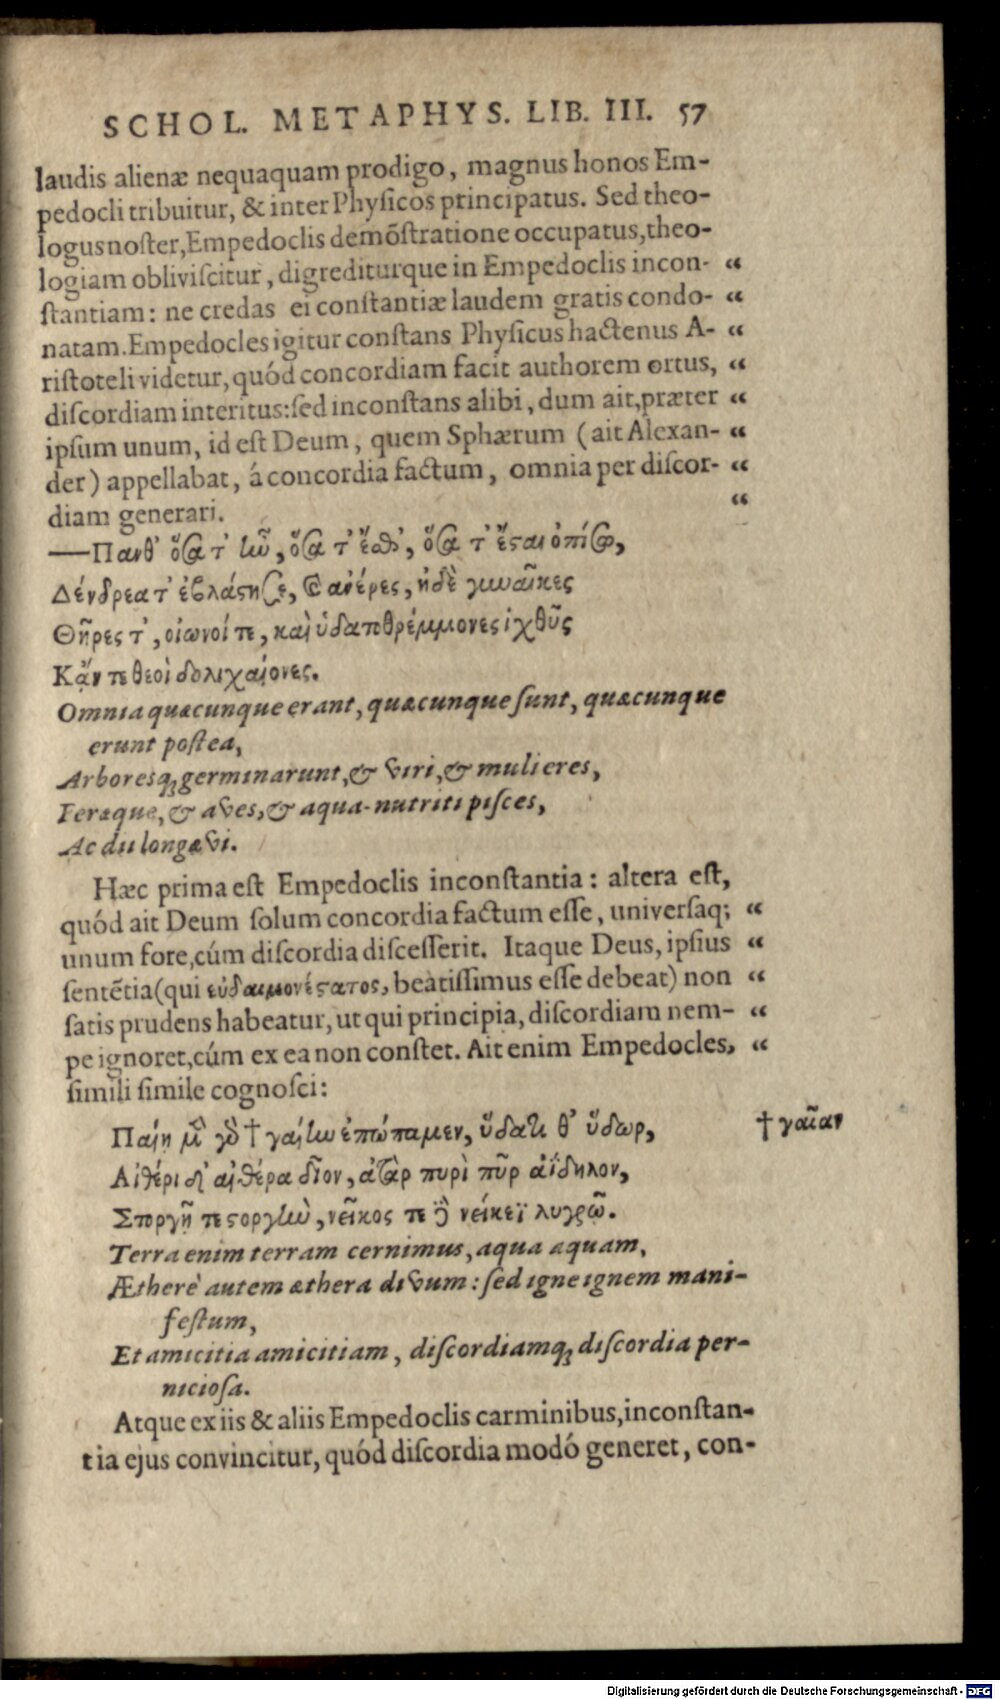 SCHOL. METAPHYS. LIB. III. 57
laudis alienæ nequaquam prodigo, magnus honos Em-
pedocli tribuitur, & inter Physicos principatus. Sed theo-
logus noster, Empedoclis demõstratione occupatus, theo-
logiam obliviscitur, digrediturque in Empedoclis incon- “
stantiam: ne credas ei constantiæ laudem gratis condo- “
natam. Empedocles igitur constans Physicus hactenus A- “
ristoteli videtur, quód concordiam facit authorem ortus, “
discordiam interitus: sed inconstans alibi, dum ait, præter “
ipsum unum, id est Deum, quem Sphærum (ait Alexan- “
der) appellabat, á concordia factum, omnia per discor- “
diam generari. “
—Πανθ' ὅσα τ' ἦν, ὅσα τ' ἔσθ', ὅσα τ' ἔσται ὀπίσω,
Δένδρεα τ' ἐβλάστησε, καὶ ἀνέρες, ἠδὲ γυναῖκες
Θῆρες τ', οἰωνοί τε, καὶ ὑδατοθρέμμονες ἰχθῦς
Κᾄν τε θεοὶ δολιχαίονες.
Omnia quæcunque erant, quæcunque sunt, quæcunque
erunt postea,
Arboresq; germinarunt, & viri, & mulieres,
Feræque, & aves, & aqua-nutriti pisces,
Ac dii longævi.
Hæc prima est Empedoclis inconstantia: altera est,
quód ait Deum solum concordia factum esse, universaq; “
unum fore, cúm discordia discesserit. Itaque Deus, ipsius “
sentẽtia (qui εὐδαιμονέστατος, beatissimus esse debeat) non “
satis prudens habeatur, ut qui principia, discordiam nem- “
pe ignoret, cúm ex ea non constet. Ait enim Empedocles, “
simili simile cognosci:
Γαίῃ μὲν γὸ † γαίην ἐπώπαμεν, ὕδατι θ' ὕδωρ, † γαῖαν
Αἰθέρι δ' αἰθέρα δῖον, ἀτὰρ πυρὶ πῦρ ἀΐδηλον,
Στοργῇ τε στοργὴν, νεῖκος τε δὲ νείκεϊ λυγρῶ.
Terra enim terram cernimus, aqua aquam,
Ætherè autem æthera divum: sed igne ignem mani-
festum,
Et amicitia amicitiam, discordiamq; discordia per-
niciosa.
Atque ex iis & aliis Empedoclis carminibus, inconstan-
tia ejus convincitur, quód discordia modó generet, con-
Digitalisierung gefördert durch die Deutsche Forschungsgemeinschaft - DFG